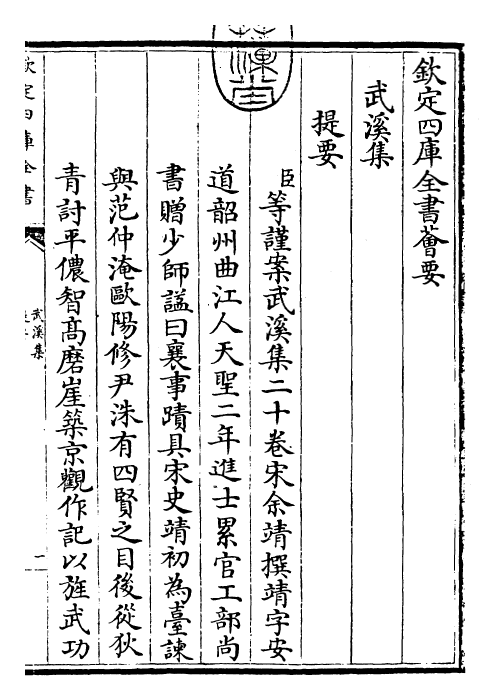 欽定四庫全書薈要
武溪集
提要
臣等謹案武溪集二十卷宋余靖撰靖字安
道韶州曲江人天聖二年進士累官工部尚
書贈少師諡曰襄事蹟具宋史靖初為臺諫
與范仲淹歐陽修尹洙有四賢之目後從狄
青討平儂智高磨崖築京觀作記以旌武功
欽定四庫全書
武溪集
一